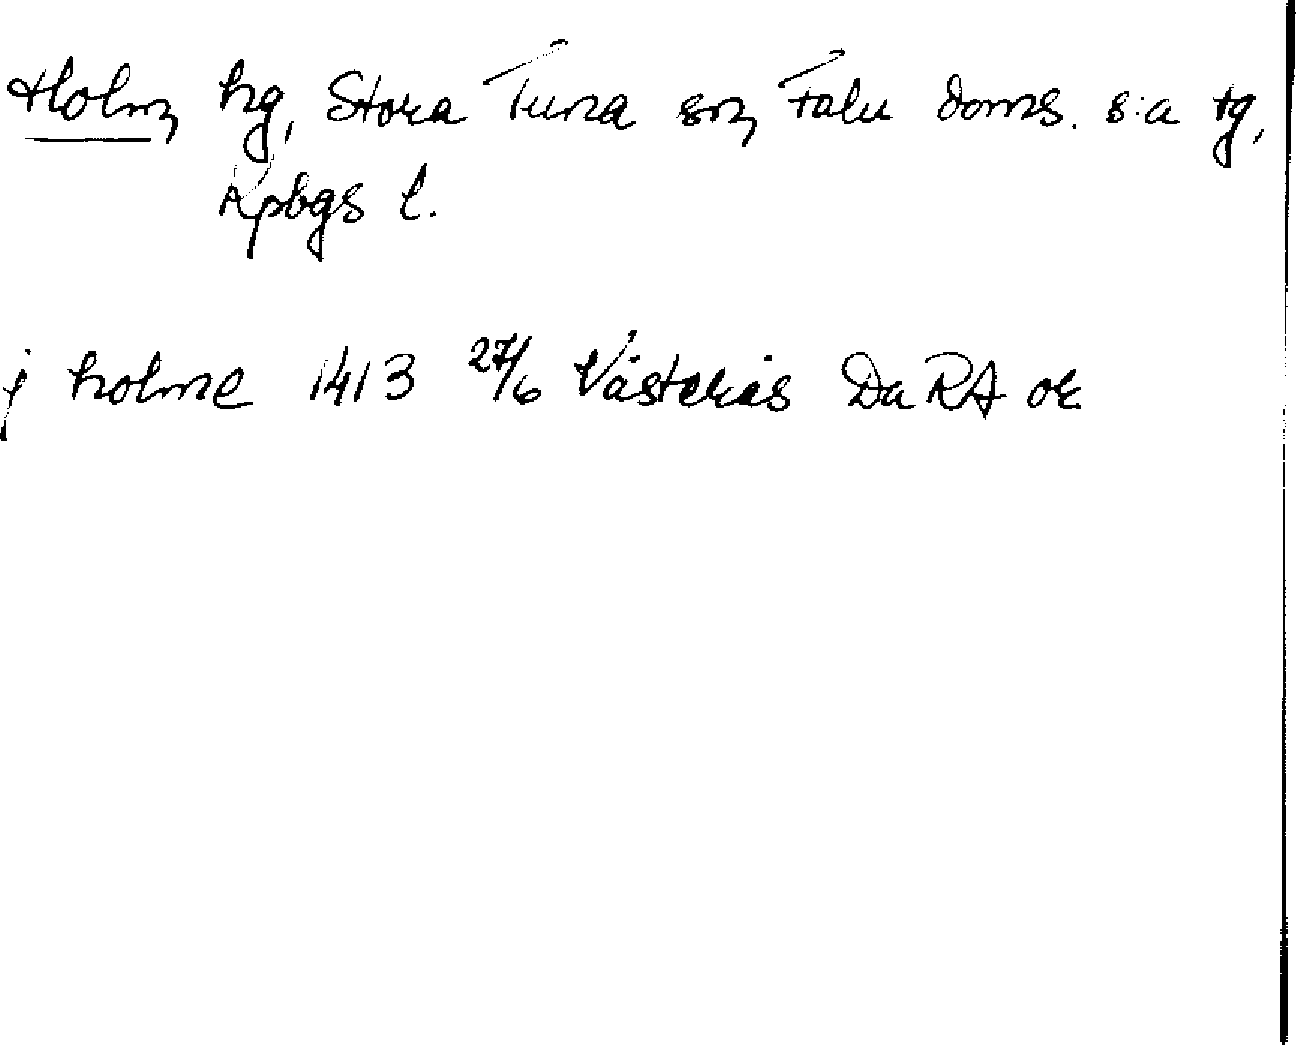 Holm, hg, Stora Tuna sn, Falu doms. s:a tg,
Kpbgs l.
j holme 1413 27/6 Västerås Da RA or